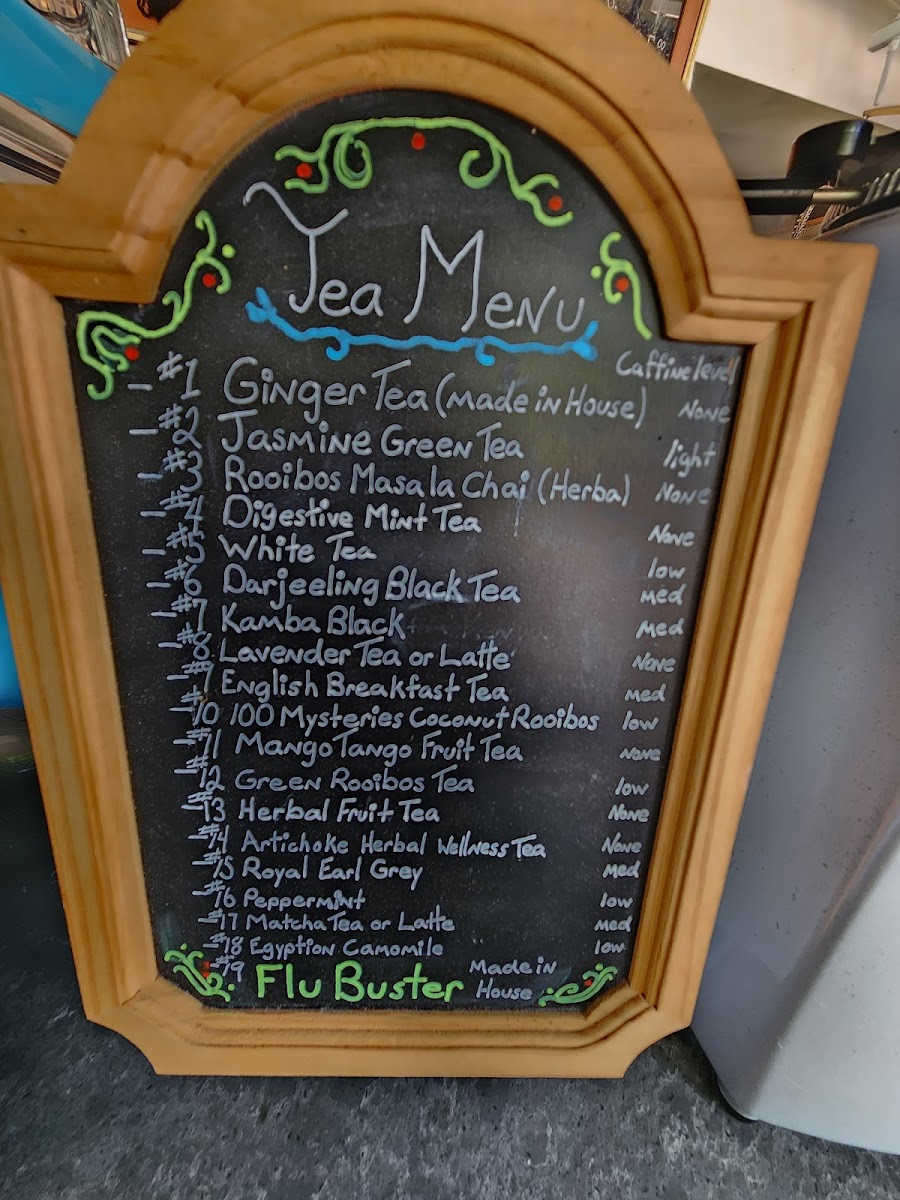 Tea Menu
Caffine level
#1 Ginger Tea (made in House) None
#2 Jasmine Green Tea light
#3 Rooibos Masala Chai (Herba) None
#4 Digestive Mint Tea None
#5 White Tea low
#6 Darjeeling Black Tea med
#7 Kamba Black Med
#8 Lavender Tea or Latte None
#9 English Breakfast Tea med
#10 100 Mysteries Coconut Rooibos low
#11 Mango Tango Fruit Tea None
#12 Green Rooibos Tea low
#13 Herbal Fruit Tea None
#14 Artichoke Herbal Wellness Tea None
#15 Royal Earl Grey med
#16 Peppermint low
#17 Matcha Tea or Latte med
#18 Egyption Camomile low
#19 Flu Buster Made in House